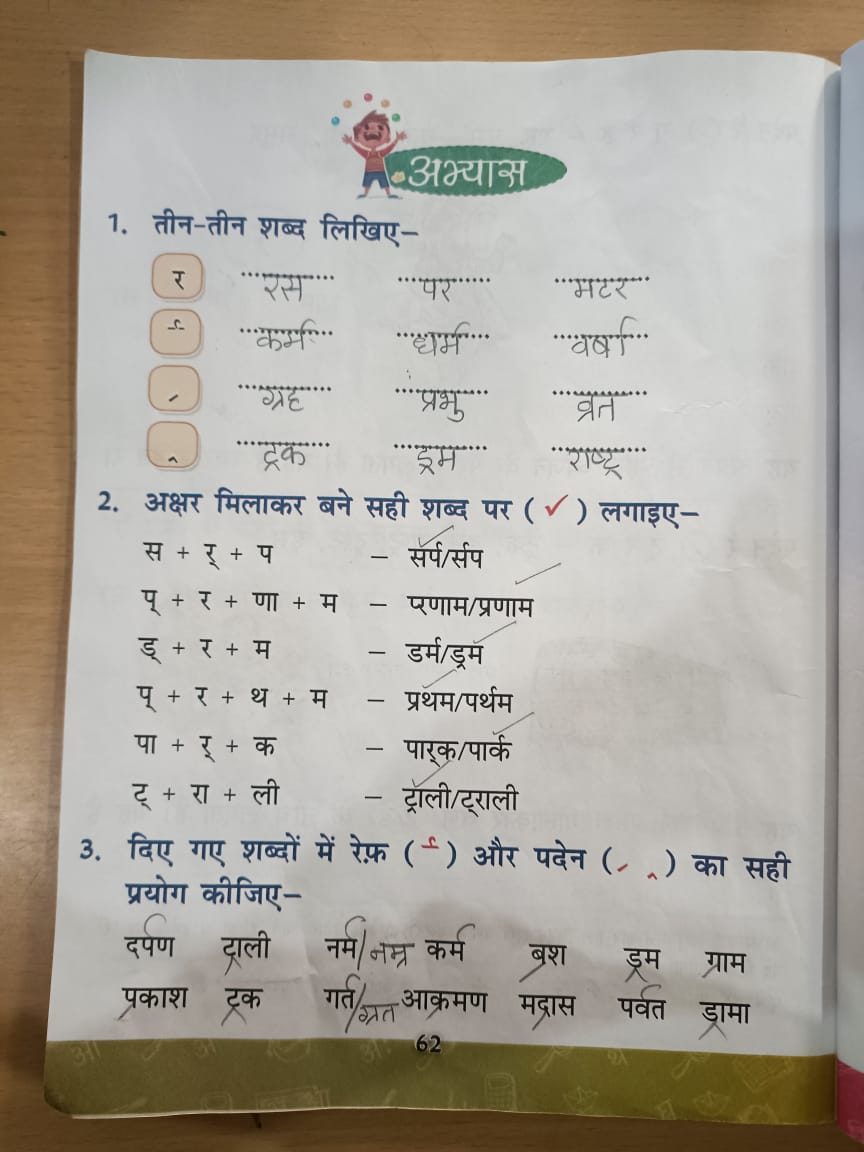 अभ्यास
1. तीन-तीन शब्द लिखिए–
र रस पर मटर
र्  कर्म धर्म वर्षा
्र ग्रह प्रभु व्रत
्र ट्रक ड्रम राष्ट्र
2. अक्षर मिलाकर बने सही शब्द पर ( ✓ ) लगाइए–
स + र् + प – सर्प/र्सप
प् + र + णा + म – प्रणाम/प्रणाम
ड् + र + म – डर्म/ड्रम
प् + र + थ + म – प्रथम/पर्थम
पा + र् + क – पार्‌क/पार्क
ट् + रा + ली – ट्राली/ट्‌राली
3. दिए गए शब्दों में रेफ़ ( र् ) और पदेन ( ्र ्र ) का सही
प्रयोग कीजिए–
दर्पण ट्राली नर्म/नम्र कर्म ब्रश ड्रम ग्राम
प्रकाश ट्रक गर्त/ग्रत आक्रमण मद्रास पर्वत ड्रामा
62